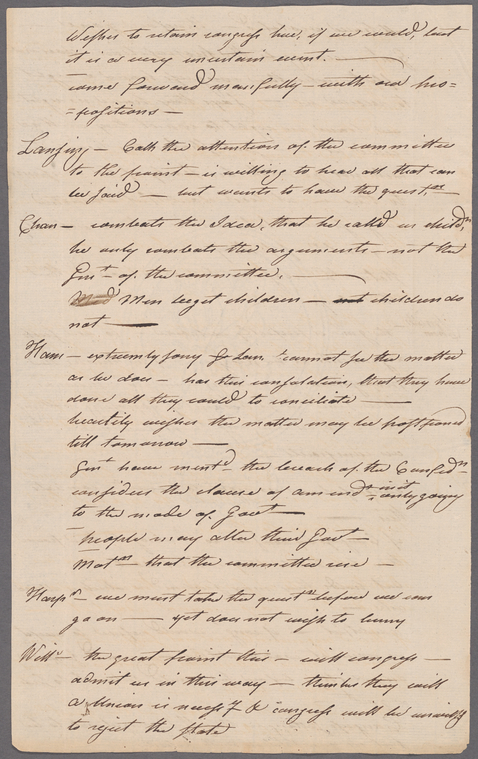 Wishes to retain congress here, if we could, but
it is a very uncertain event. —
come forward manfully — with our pro=
=positions —
Lansing — Calls the attention of the committee
to the point — is willing to hear all that can
be said — but wants to have the quest.on
Chan — combats the Idea, that he called us child.n
he only combats the arguments — not the
Gent of the committee. —
Men beget children — not children do
not —
Ham — extremely sorry G Lan. cannot see the matter
as he does — has this consolation, that they have
done all they could to conciliate —
heartily wishes the matter may be postponed
till tomorrow —
Gent have mentd the breach of the Confedn
considers the clause of amendts not only going
to the mode of Govt —
people may alter their Govt —
Motn — that the committee rise —
Harpr — we must take the questn before we can
go on — yet does not wish to hurry
Willms — the great point this — will congress —
admit us in this way — thinks they will
a Union is necessy & congress will be unwillg
to reject the state